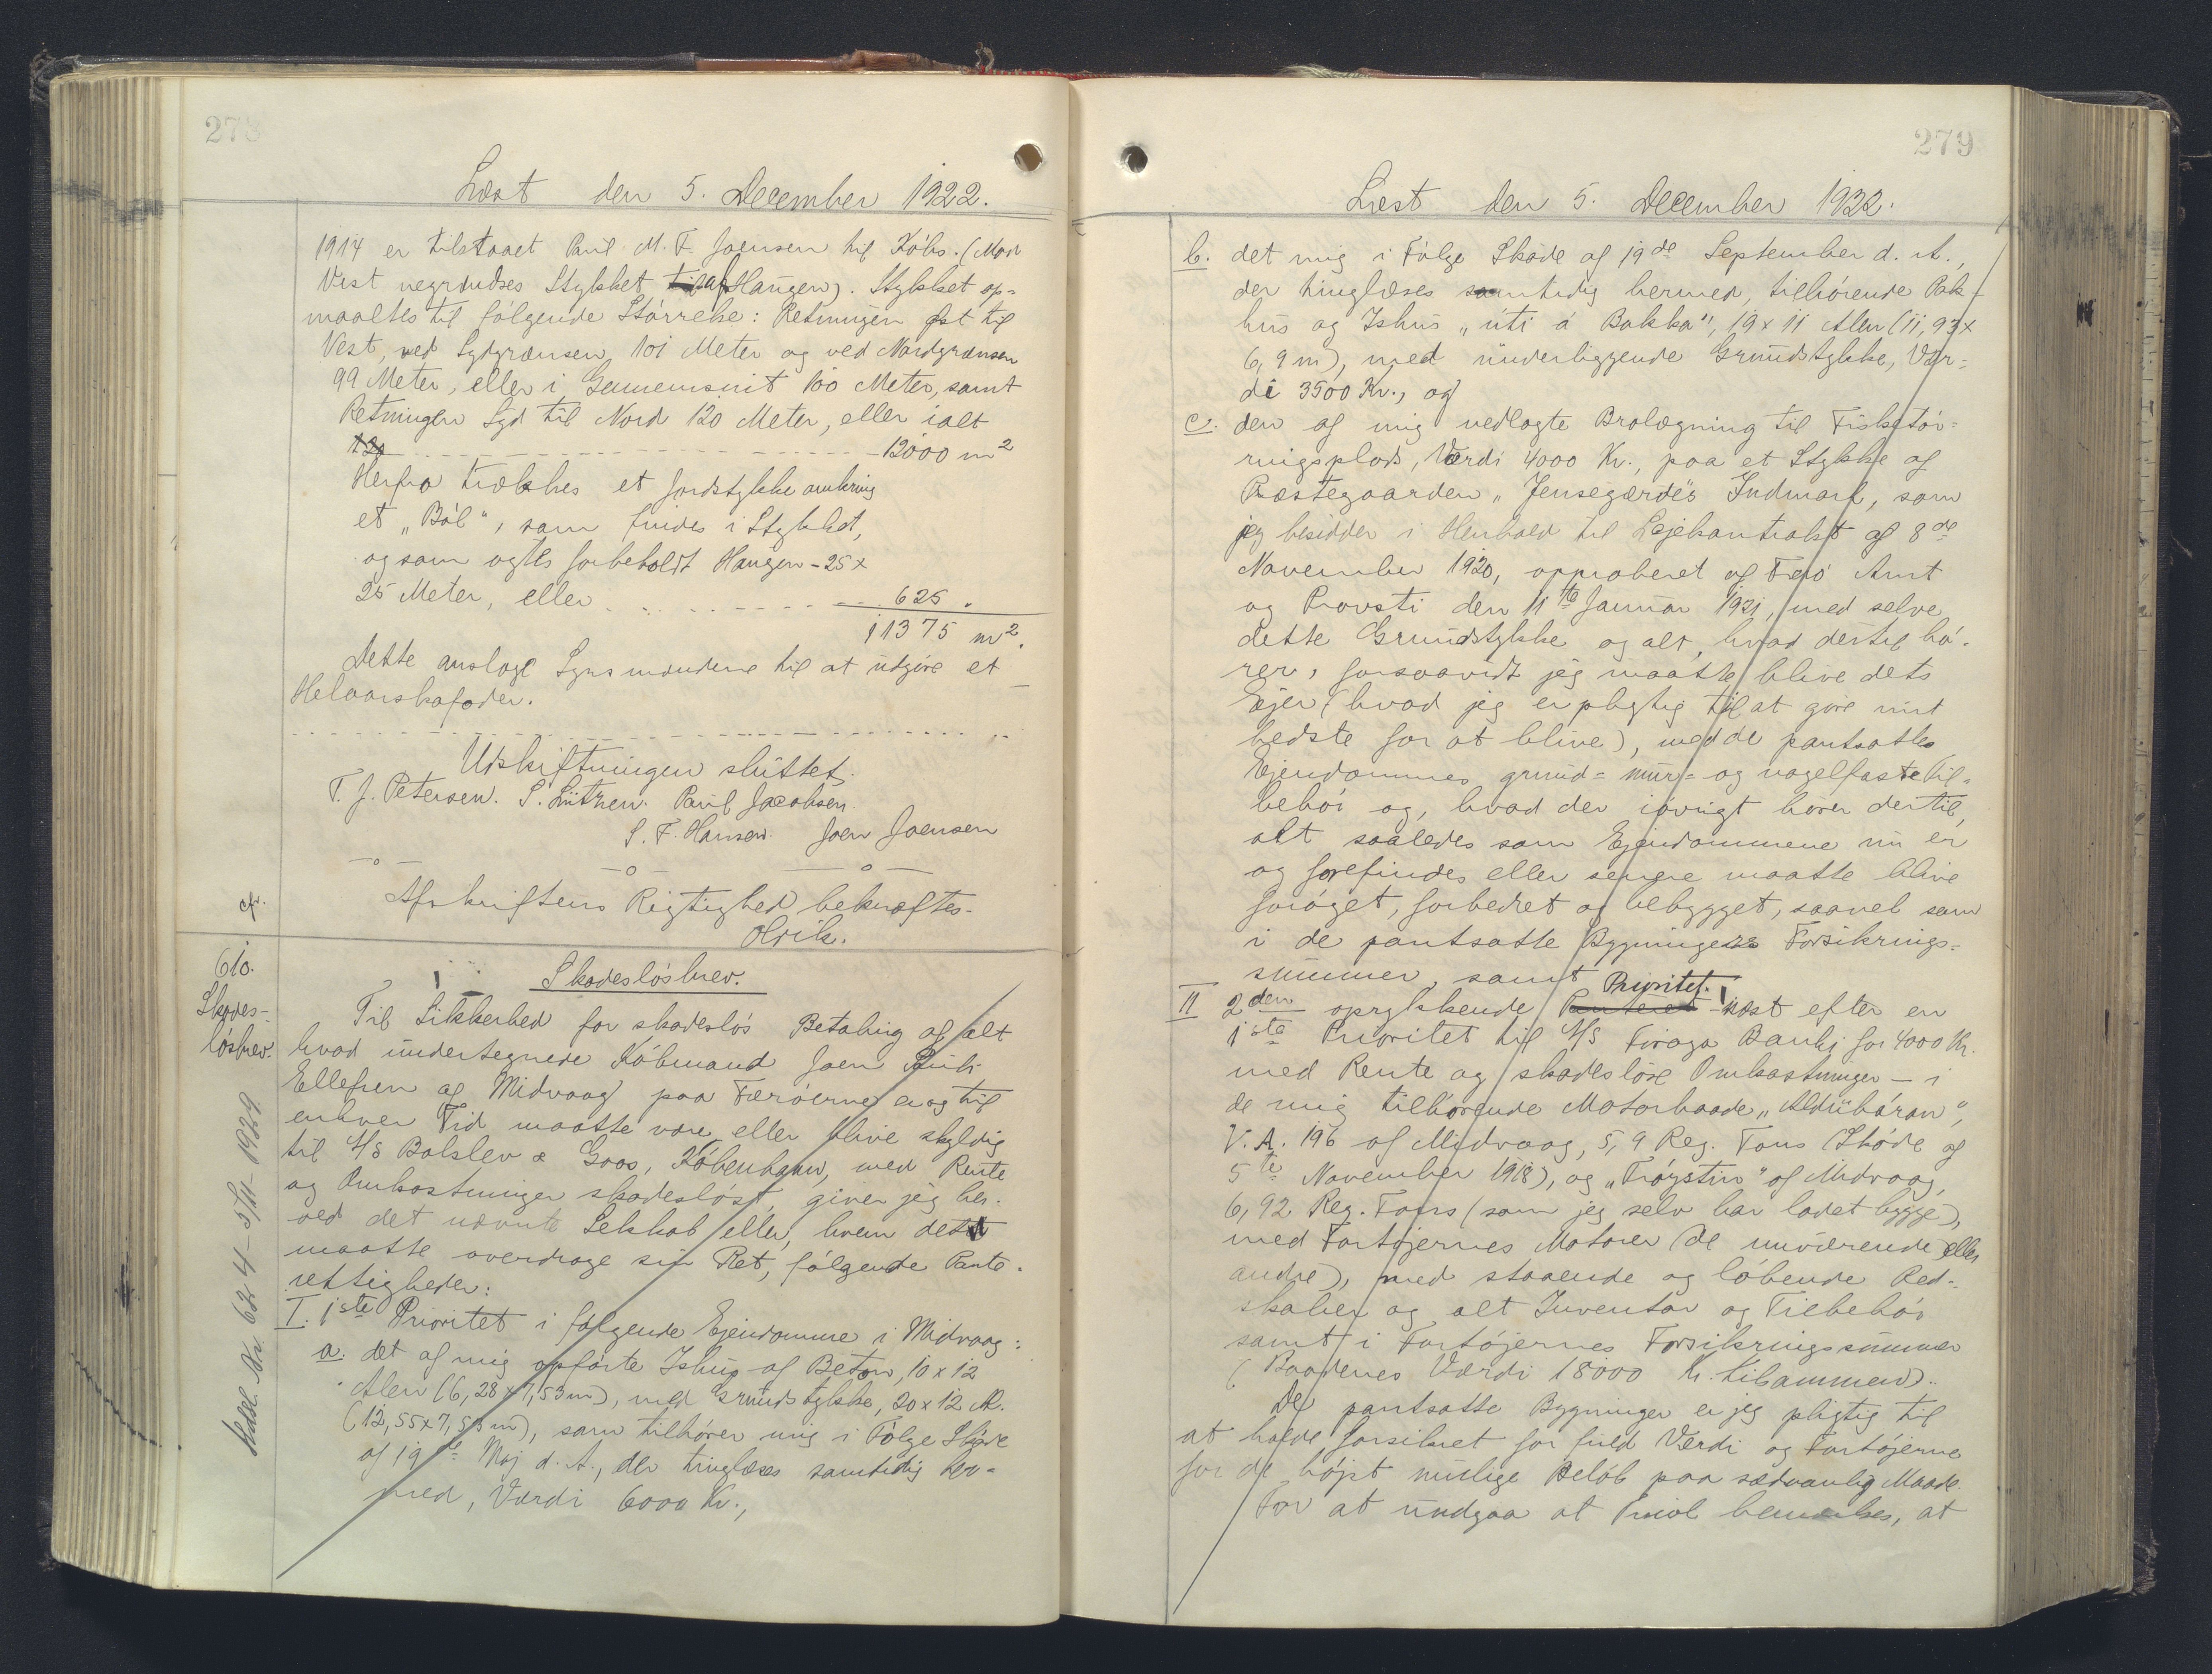 278
Læst den 5. December 1922.
1914 er tilstaaet Paul M. F. Joensen til Købs. (Mod
Vest negrændses Stykket af Haugen). Stykket op=
maaltes til følgende Størrelse: Retningen Øst til
Vest, ved Sydgrænsen 101 Meter og ved Nordgrænsen
99 Meter, eller i Gennemsnit 100 Meter, samt
Retningen Syd til Nord 120 Meter, eller ialt
120 - - - - - - - - 12000 m²
Herfra trækkes et Jordstykke omkring
et „Ból“, som findes i Stykket,
og som agtes forbeholdt Haugen - 25 x
25 Meter, eller - - - - - - 625 „
11375 m².
Dette ansloges Synsmændene til at udgøre et
Helaarskofoder.
Udskiftningen sluttet.
T. J. Petersen. S. Lützen. Paul Jacobsen.
S. F. Hansen. Joen Joensen
Afskriftens Rigtighed bekræftes.
Olrik.
cfr.
610.
Skades-
løsbrev.
Skadesløsbrev.
Til Sikkerhed for skadesløs Betaling af alt
hvad undertegnede Købmand Joen
Ellefsen af Midvaag paa Færøerne er og til
enhver Tid maatte være eller blive skyldig
til A/S Balslev & Goos, København, med Rente
og Omkostninger skadesløst, giver jeg her-
ved det nævnte Selskab eller, hvem dette
maatte overdrage sin Ret, følgende Pante-
rettigheder:
I. 1ste Prioritet i følgende Ejendomme i Midvaag:
a. det af mig opførte Ishus af Beton, 10 x 12
Alen (6,28 x 7,53 m), med Grundstykke, 20 x 12 Al.
(12,55 x 7,53 m), som tilhører mig i Følge Skøde
af 19de Maj d. A., der tinglæses samtidig her-
med, Værdi 6000 Kr.,
Aflæst Nr. 624 - 5/11 - 1929.
279
Læst den 5. December 1922.
b. det mig i Følge Skøde af 19de September d. A.,
der tinglæses samtidig hermed, tilhørende Pak-
hus og Ishus „úti á Bakka“, 19 x 11 Alen (11,93 x
6,9 m), med underliggende Grundstykke, Vær-
di 3500 Kr., og
c. den af mig nedlagte Brolægning til Fisketør-
ringsplads, Værdi 4000 Kr., paa et Stykke af
Præstegaarden „Jensegærde“s Indmark, som
jeg besidder i Henhold til Lejekontrakt af 8de
November 1920, approberet af Færø Amt
og Provsti den 11te Januar 1921, med selve
dette Grundstykke og alt, hvad dertil hø-
rer, forsaavidt jeg maatte blive dets
Ejer (hvad jeg er pligtig til at gøre mit
bedste for at blive), med de pantsatte
Ejendommes grund= mur= og nagelfaste Til-
behør og, hvad der iøvrigt hører dertil,
alt saaledes som Ejendommene nu er
og forefindes eller senere maatte blive
forøget, forbedret og bebygget, saavel som
i de pantsatte Bygningers Forsikrings-
summer, samt
II 2den oprykkende Panteret Prioritet - næst efter en
1ste Prioritet til A/S Føroya Banki for 4000 Kr.
med Rente og skadesløse Omkostninger - i
de mig tilhørende Motorbaade „Aldúbáran“,
V. A. 196 af Midvaag, 5,9 Reg. Tons (Skøde af
5te November 1918), og „Trøystin“ af Midvaag,
6,92 Reg. Tons (som jeg selv har ladet bygge),
med Fartøjernes Motorer (de nuværende eller
andre), med staaende og løbende Red-
skaber og alt Inventar og Tilbehør
samt i Fartøjernes Forsikringssummer
(Baadenes Værdi 18000 Kr. tilsammen).
De pantsatte Bygninger er jeg pligtig til
at holde forsikret for fuld Værdi og Fartøjerne
for de højst mulige Beløb paa sædvanlig Maade.
For at undgaa al Tvivl bemærkes, at